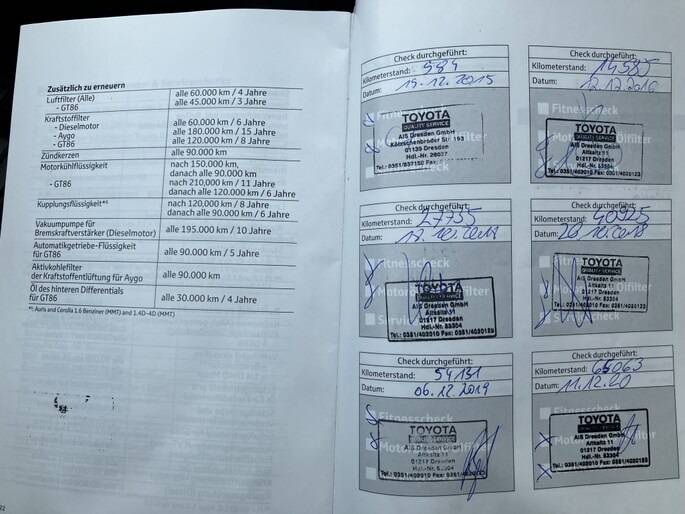 Zusätzlich zu erneuern
Luftfilter (Alle) alle 60.000 km / 4 Jahre
- GT86 alle 45.000 km / 3 Jahre
Kraftstoffilter
- Dieselmotor alle 60.000 km / 6 Jahre
- Aygo alle 180.000 km / 15 Jahre
- GT86 alle 120.000 km / 8 Jahre
Zündkerzen alle 90.000 km
Motorkühlflüssigkeit nach 150.000 km,
danach alle 90.000 km
- GT86 nach 210.000 km / 11 Jahre
danach alle 120.000 km / 6 Jahre
Kupplungsflüssigkeit*¹ nach 120.000 km / 8 Jahre
danach alle 90.000 km / 6 Jahre
Vakuumpumpe für
Bremskraftverstärker (Dieselmotor) alle 195.000 km / 10 Jahre
Automatikgetriebe-Flüssigkeit
für GT86 alle 90.000 km / 5 Jahre
Aktivkohlefilter
der Kraftstoffentlüftung für Aygo alle 90.000 km
Öl des hinteren Differentials
für GT86 alle 30.000 km / 4 Jahre
*¹: Auris and Corolla 1.6 Benziner (MMT) and 1.4D-4D (MMT)
22
Check durchgeführt:
Kilometerstand: 984
Datum: 15.12.2015
Fitnesscheck
TOYOTA
QUALITY SERVICE
AIS Dresden GmbH
Kötzschenbroder Str. 193
01139 Dresden
Check durchgeführt:
Kilometerstand: 14585
Datum: 12.12.2016
Fitnesscheck
Motorölfilter
TOYOTA
QUALITY SERVICE
AIS Dresden GmbH
Altkaitz 11
01217 Dresden
Hdl.-Nr. 53304
Tel.: 0351/4020110 Fax: 0351/4020123
Check durchgeführt:
Kilometerstand: 27735
Datum:
Fitnesscheck
TOYOTA
QUALITY SERVICE
AIS Dresden GmbH
Altkaitz 11
01217 Dresden
Hdl.-Nr. 53304
Check durchgeführt:
Kilometerstand: 40925
Datum:
Fitnesscheck
TOYOTA
QUALITY SERVICE
AIS Dresden GmbH
Altkaitz 11
01217 Dresden
Hdl.-Nr. 53304
Tel.: 0351/4020110 Fax: 0351/4020123
Check durchgeführt:
Kilometerstand: 54131
Datum: 06.12.2019
Fitnesscheck
TOYOTA
AIS Dresden GmbH
Altkaitz 11
01217 Dresden
Hdl.-Nr. 53304
Tel.: 0351/4020110 Fax: 0351/4020123
Check durchgeführt:
Kilometerstand: 65063
Datum: 11.12.20
Fitnesscheck
TOYOTA
AIS Dresden GmbH
Altkaitz 11
01217 Dresden
Hdl.-Nr. 53304
Tel.: 0351/4020110 Fax: 0351/4020123